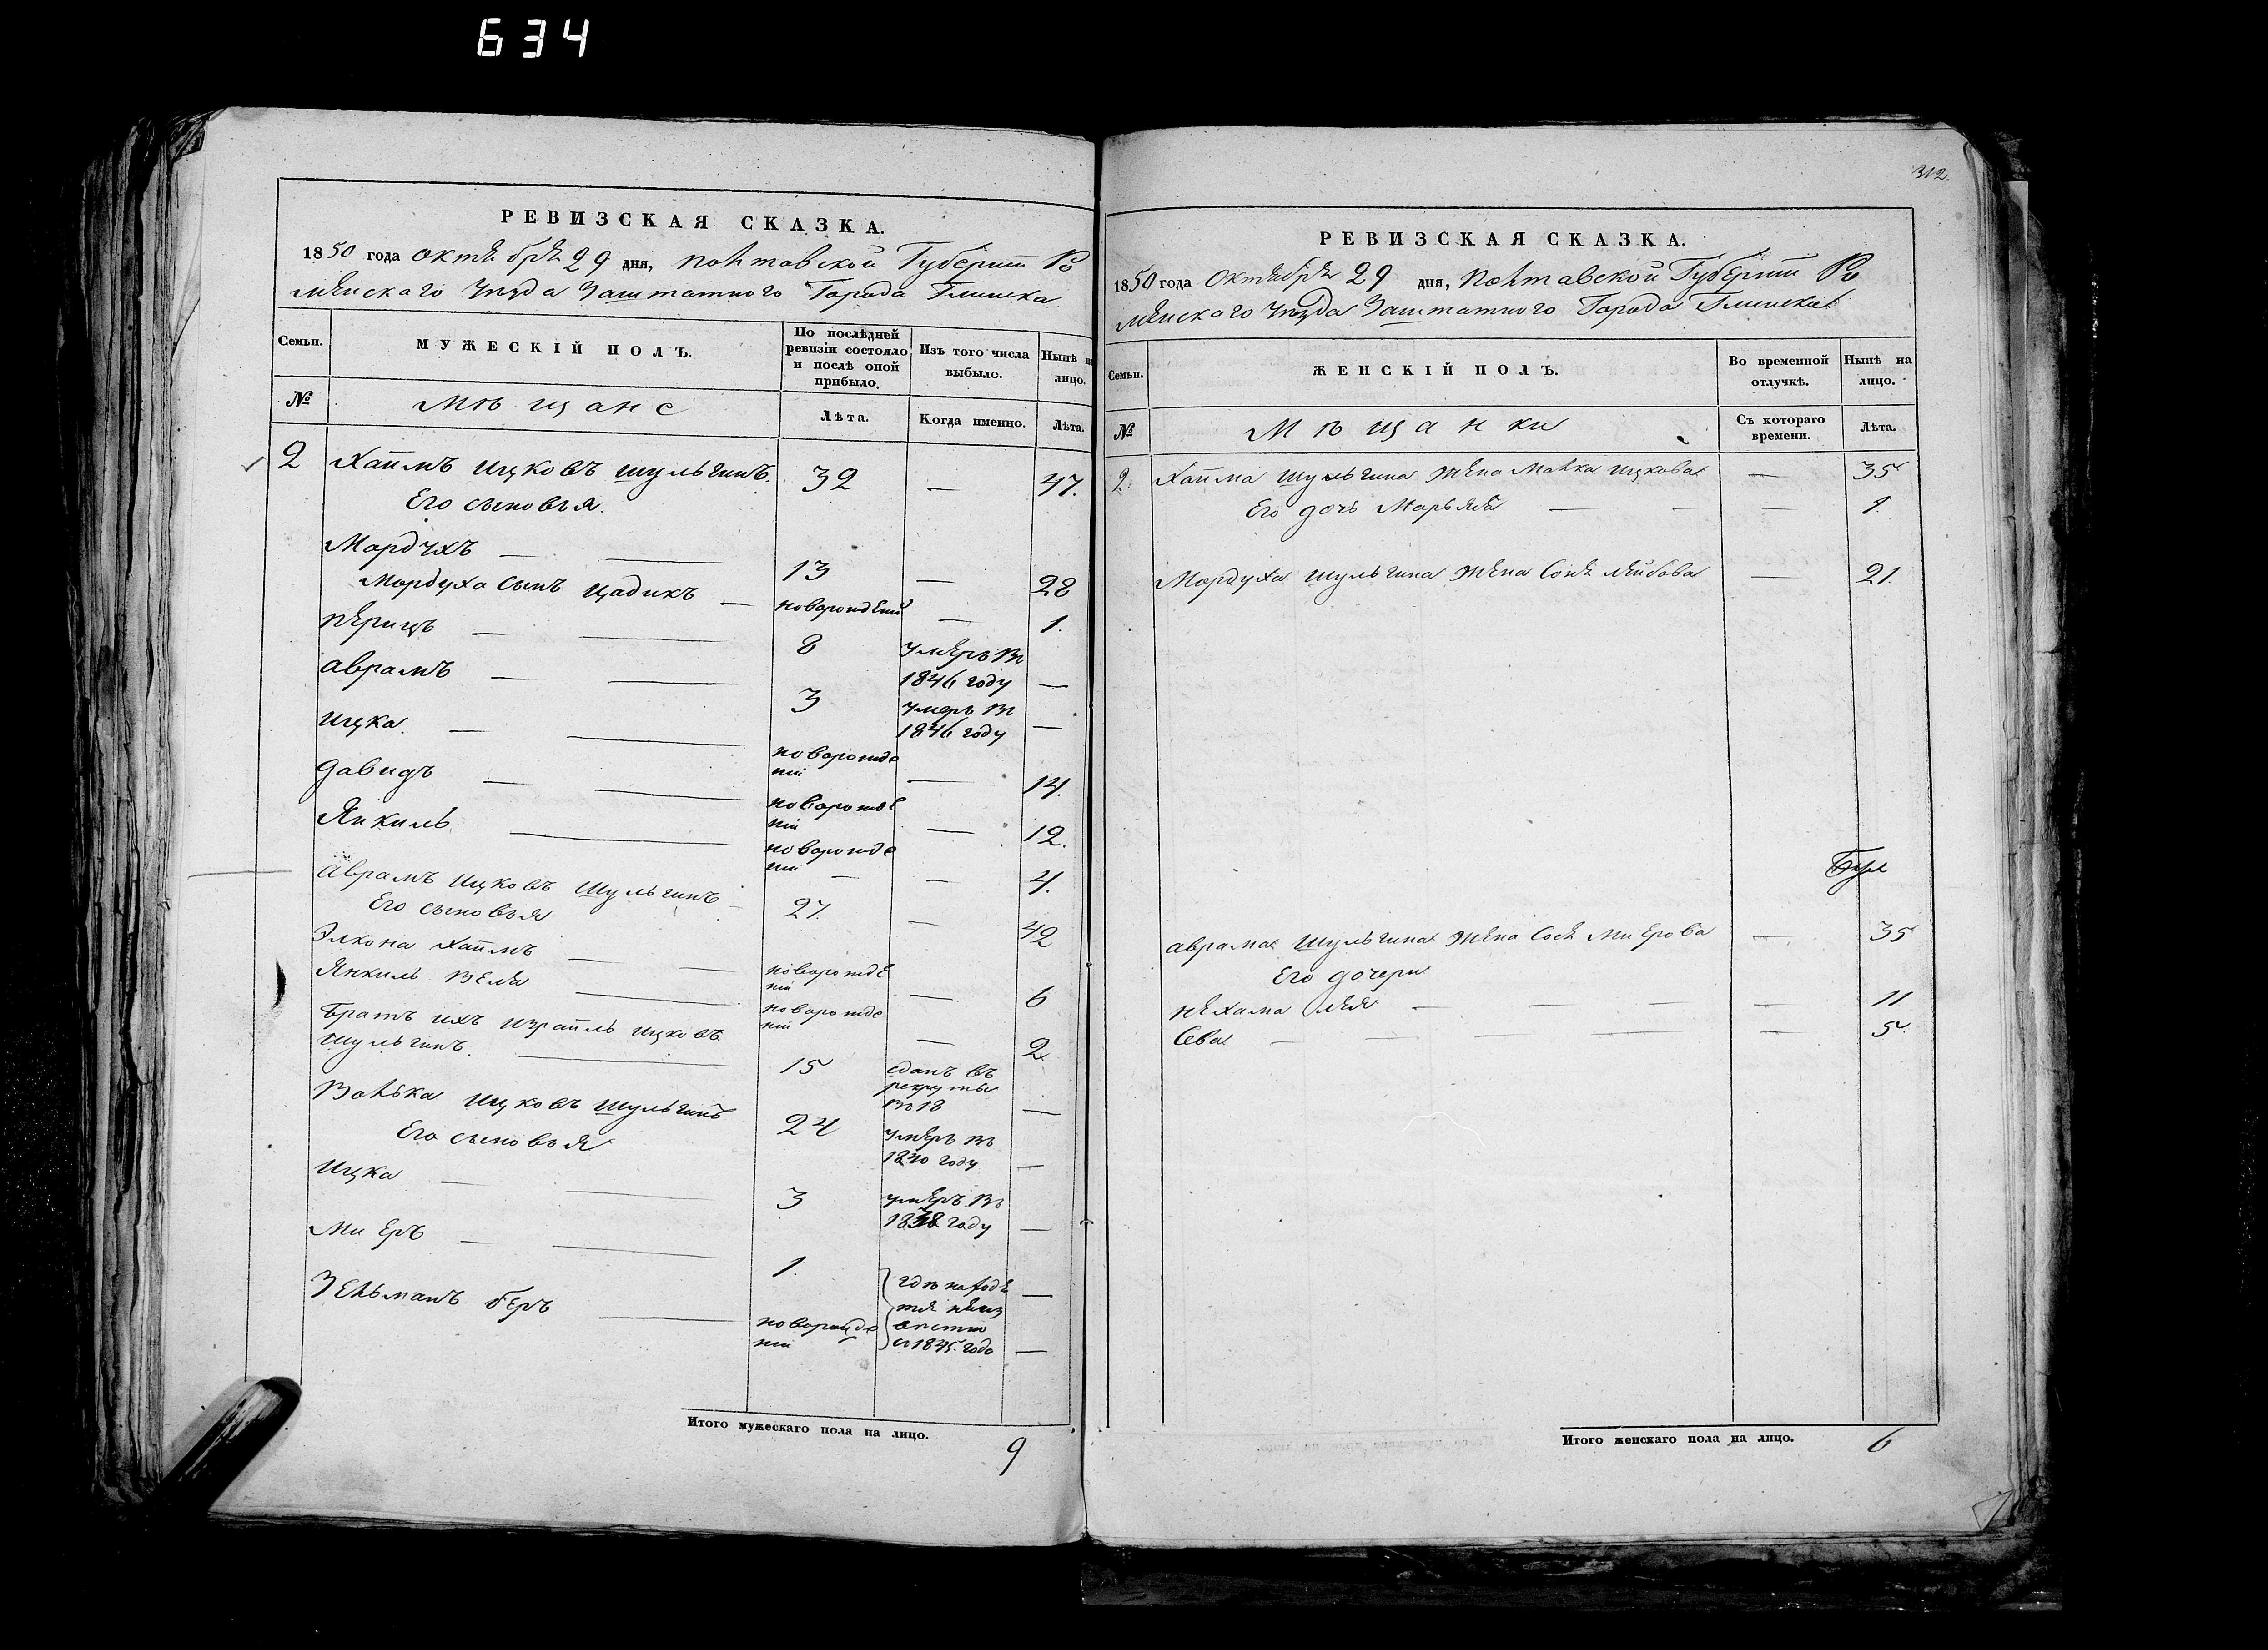 634
РЕВИЗСКАЯ СКАЗКА.
1850 года октября 29 дня, Полтавской Губернии Ро
менскаго уезда Заштатного Города Глинска
Семьи.
МУЖЕСКІЙ ПОЛЪ.
По послѣдней ревизіи состояло и послѣ оной прибыло.
Изъ того числа выбыло.
Нынѣ на лицо.
№
Мѣщане
Лѣта.
Когда именно.
Лѣта.
2 Хаимъ Ицковъ Шульгинъ. 32 — 47.
Его сыновья.
Мордухъ — — 13 — 28
Мордуха сынъ Цадикъ — новорожденый — 1.
Перицъ — — 8 умеръ въ
1846 году —
Аврамъ — — 3 умеръ въ
1846 году —
Ицка. — — новорожде
ний — 14.
Давидъ — — новорожде
ний — 12.
Янкиль — новорожде
ний — — 4.
Аврамъ Ицковъ Шульгинъ — 27. — 42
Его сыновья
Элкона Хаимъ — — новорожде
ний — 6
Янкиль Веля — новорожде
ний — 2
Братъ ихъ Израиль Ицковъ
Шульгинъ. — 15 сданъ въ
рекруты
въ 18 —
Волька Ицковъ Шульгинъ 24 умеръ въ
1840 году —
Его сыновья
Ицка — — 3 умеръ въ
1838 году —
Миеръ — — 1. —
Зельманъ Беръ — новорожде
ний
где находи
тся неиз
вестно
с 1845 года —
Итого мужескаго пола на лицо.
9
312.
РЕВИЗСКАЯ СКАЗКА.
1850 года Октября 29 дня, Полтавской Губернии Ро
менскаго уезда Заштатного Города Глинска
Семьи.
ЖЕНСКІЙ ПОЛЪ.
Во временной отлучкѣ.
Нынѣ на лицо.
№
Мѣщанки
Съ котораго времени.
Лѣта.
2 Хаима Шульгина жена Малка Ицкова — 35
Его дочь Марьяся — — — 1.
Мордуха Шульгина жена Соня Лейбова — 21.
Аврама Шульгина жена Сося Миерова — 35
Его дочери
Нехама Лея — — — — 11
Сева — — — — — 5
Итого женскаго пола на лицо.
6